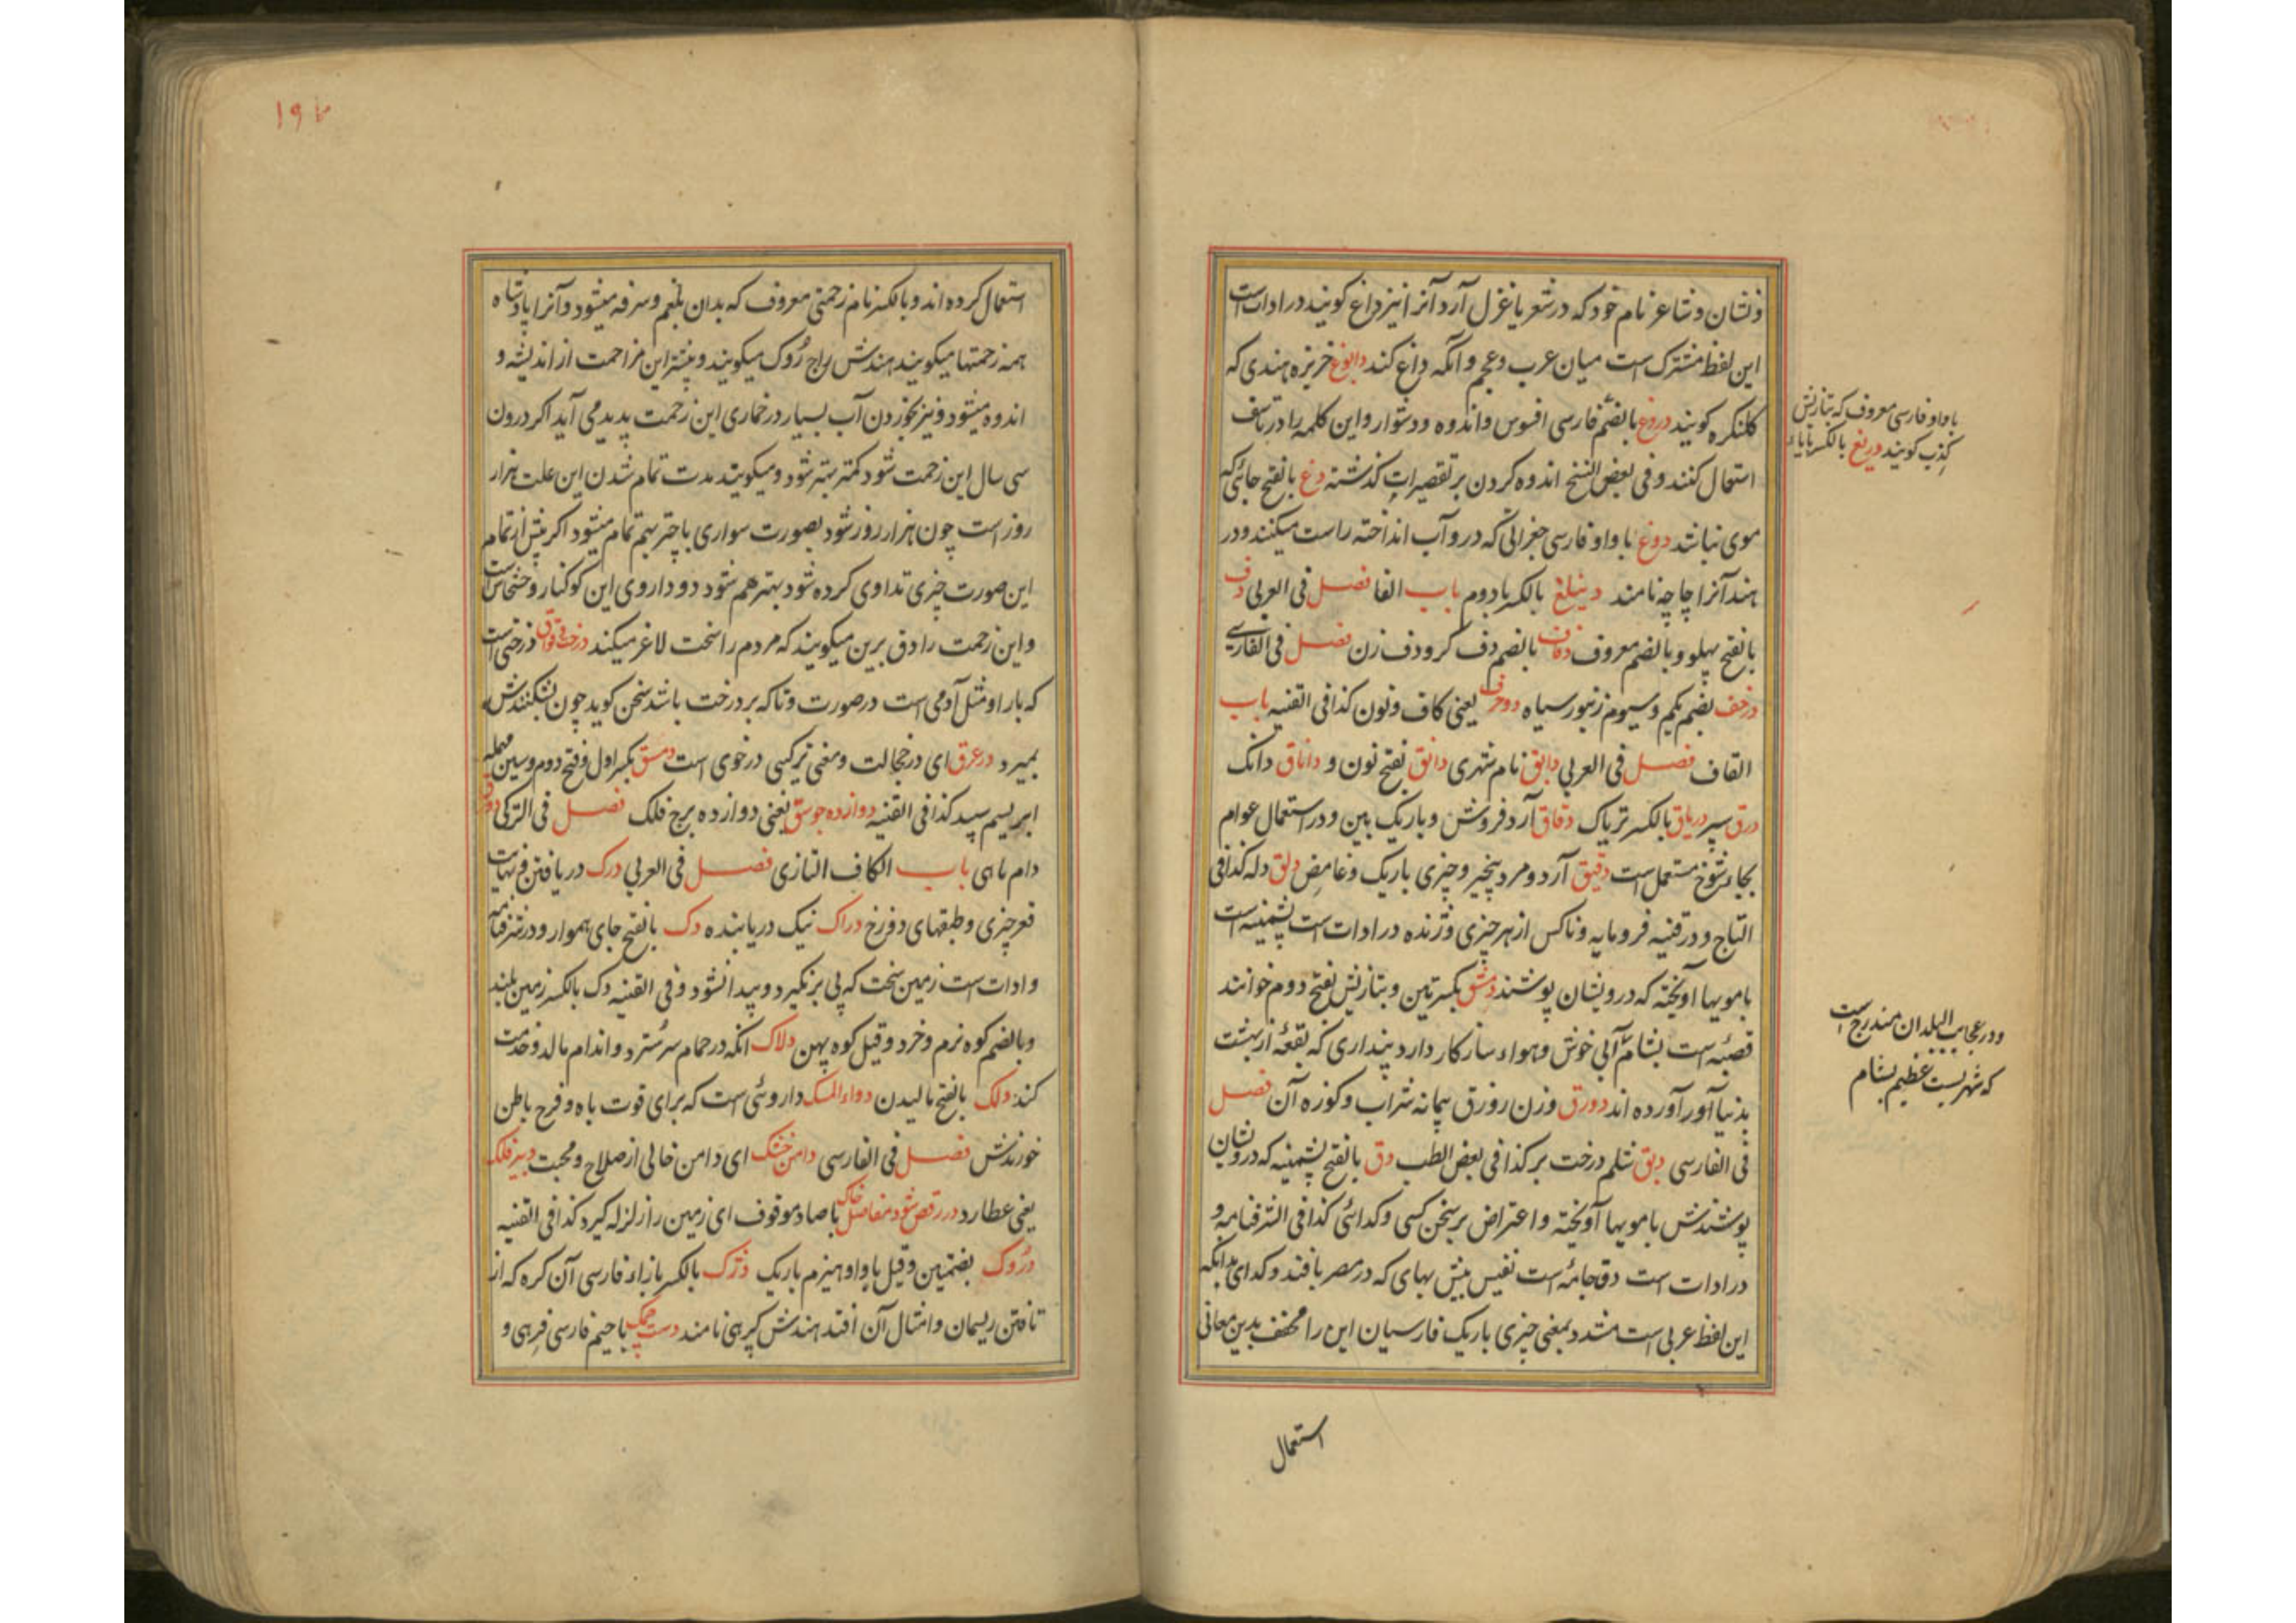 ونشان و شاعر نام خود که در شعر یا غزل آرد آنرا نیز داغ کویند در ادات است
این لفظ مشترک است میان عرب و عجم و آنکه داغ کند دابوغ خربزه هندی که
کلنکره کویند دروغ بالضم فارسی افسوس و اندوه و دشوار و این کلمه را در تاسف
استعمال کنند و فی بعض النسخ اندوه کردن بر تقصیرات کذشته دغ بالفتح جائی که
موی نباشد دوغ با واو فارسی جغراتی که درو آب انداخته راست میکنند و در
هند آنرا چاچه نامند دینلغ بالکسر یا دوم باب الفا فصل فی العربی دف
بالفتح پهلو و بالضم معروف دفاف بالضم دف کر و دف زن فصل فی الفارسی
درخف بضم یکم و سیوم زنبور سیاه دوحرف یعنی کاف و نون کذا فی القنیه باب
القاف فصل فی العربی دابق نام شهری دانق بفتح نون و داناق دانک
درق سپر دریاق بالکسر تریاک دقاق آرد فروش و باریک بین و در استعمال عوام
بجای شوخ مستعمل است دقیق آرد و مرد بیخیر و چیزی باریک و غامض دلق دله کذا فی
التاج و در قنیه فرومایه و ناکس از هر چیزی و ژنده در ادات است پشمینه است
با مویها آویخته که درویشان پوشند دمشق بکسرتین و بتازیش بفتح دوم خوانند
قصبه است بشام آبی خوش و هواء سازکار دارد پنداری که بقعه از بهشت
بدنیا آورآورده اند دورق وزن رورق پیمانه شراب و کوزه آن فصل
فی الفارسی دبق شلم درخت بر کذا فی بعض الطب دق بالفتح پشمینه که درویشان
پوشندش با مویها آویخته و اعتراض بر سخن کسی و کدائی کذا فی الشرفنامه و
در ادات است دق جامه است نفیس بیش بهای که در مصر بافند و کدای بدانکه
این لفظ عربی است مشدد بمعنی چیزی باریک فارسیان این را مخفف بدین معانی
با واو فارسی معروف که بتازیش
کذب کویند دریغ بالکسر با یاء
و در عجایب البلدان مندرج است
که شهریست عظیم بشام
استعمال
۱۹۴
استعمال کرده اند و بالکسر نام زحمتی معروف که بدان بلغم و سرفه میشود و آنرا پادشاه
همه زحمتها میکویند هندش راج رُوک میکویند و بیشتر این مزاحمت از اندیشه و
اندوه میشود و نیز بخوردن آب بسیار در خماری این زحمت پدید می آید اکر درون
سی سال این زحمت شود کمتر بهتر شود و میکویند مدت تمام شدن این علت هزار
روز است چون هزار روز شود بصورت سواری با چتر بیم تمام میشود اکر پیش از تمام
این صورت چیزی تداوی کرده شود بهتر هم شود دو داروی این کوکنار و خشخاش است
و این زحمت را دق برین میکویند که مردم را سخت لاغر میکند درخت وقواق درختی است
که بار او مثل آدمی است در صورت و تا که بر درخت باشد سخن کوید چون بشکنندش
بمیرد درعرق ای در خجالت و معنی ترکیبی درخوی است دمسق بکسر اول و فتح دوم و سین مهمله
ابریسم سپید کذا فی القنیه دوازده جوسق یعنی دوازده برج فلک فصل فی الترکی
دام ماهی باب الکاف التازی فصل فی العربی درک دریافتن و نهایت
قعر چیزی و طبقهای دوزخ دراک نیک دریابنده دک بالفتح جای هموار و در شرفنامه
و ادات است زمین سخت که پی بر نکیرد و پیدا نشود و فی القنیه دک بالکسر زمین بلند
و بالضم کوه نرم و خرد و قیل کوه پهن دلاک انکه در حمام سر سُترد و اندام مالد و خدمت
کند دلک بالفتح مالیدن دواء المسک داروئی است که برای قوت باه و فرح باطن
خورندش فصل فی الفارسی دامن خشک ای دامن خالی از صلاح و محبت دبیر فلک
یعنی عطارد در رقص شود مفاصل خاک با صاد موقوف ای زمین را زلزله کیرد کذا فی القنیه
دُروک بضمتین و قیل با واو هیزم باریک دژک بالکسر با زاء فارسی آن کره که از
تافتن ریسمان و امثال آن افتد هندش کرهی نامند دست چک با جیم فارسی فربهی و